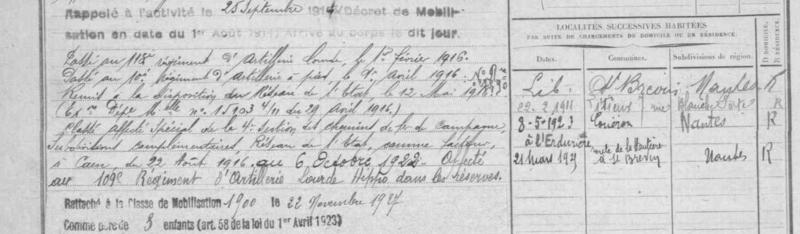 Rappelé à l'activité le 25 Septembre 1914 (Décret de Mobili-
sation en date du 1er Août 1914) Arrivé au corps le dit jour.
Passé au 111e régiment d'Artillerie Lourde, le 1er février 1916.
Passé au 10e Régiment d'Artillerie à pied, le 9 Avril 1916.
Remis à la disposition du Réseau de l'Etat le 12 Mai 1916
on Dépe Mlle n° 15903 4/11 du 29 Avril 1916)
Classé affecté Spécial de la 4e Section des chemins de fer de Campagne,
Subdivisions complémentaires, Réseau de l'Etat, comme facteur,
à Caen, du 22 Août 1916 au 6 Octobre 1922 Affecté
au 109e Régiment d'Artillerie Lourde Hippo dans les réserves.
Rattaché à la Classe de Mobilisation 1900 le 22 Novembre 1927
Comme père de 3 enfants (art. 58 de la loi du 1er Avril 1923)
LOCALITÉS SUCCESSIVES HABITÉES
PAR SUITE DE CHANGEMENTS DE DOMICILE OU DE RÉSIDENCE.
Dates. Communes. Subdivisions de région. D. DOMICILE. R. RÉSIDENCE.
Lib. St Brevin Nantes R
22. 2. 1911 rue R
8-5-1923 Couëron Nantes R
à l'Erdurière
21 mars 1927 à St Brevin Nantes R